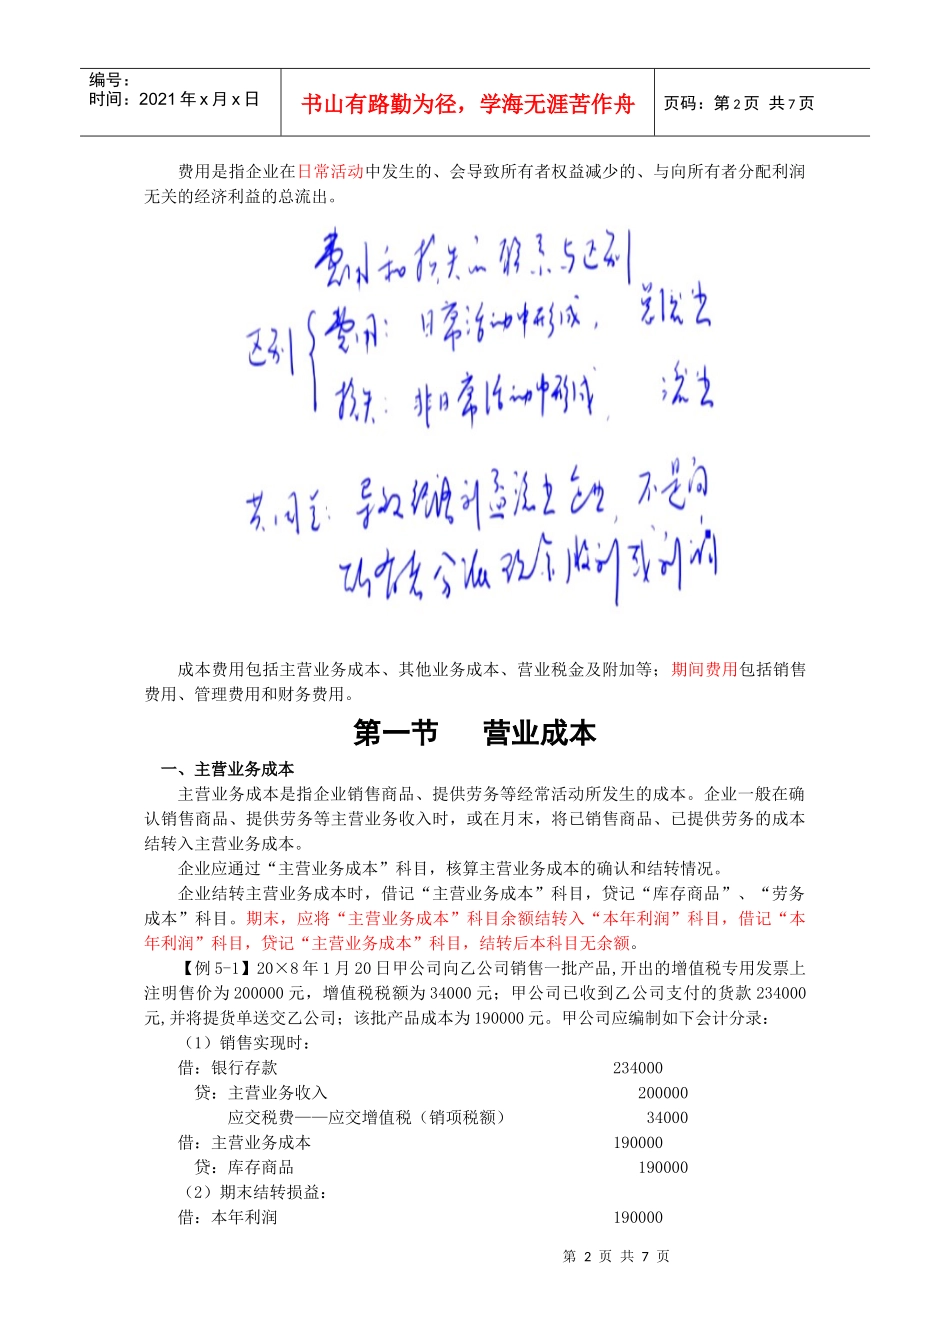 编号：
时间：2021年x月x日
书山有路勤为径，学海无涯苦作舟
页码：第2页 共7页
费用是指企业在日常活动中发生的、会导致所有者权益减少的、与向所有者分配利润
无关的经济利益的总流出。
费用和损失的联系与区别
区别{费用：日常活动中形成，总流出
损失：非日常活动中形成，流出
共同点：导致经济利益流出企业，不是向
所有者分派现金股利或利润
成本费用包括主营业务成本、其他业务成本、营业税金及附加等；期间费用包括销售
费用、管理费用和财务费用。
第一节 营业成本
一、主营业务成本
主营业务成本是指企业销售商品、提供劳务等经常活动所发生的成本。企业一般在确
认销售商品、提供劳务等主营业务收入时，或在月末，将已销售商品、已提供劳务的成本
结转入主营业务成本。
企业应通过“主营业务成本”科目，核算主营业务成本的确认和结转情况。
企业结转主营业务成本时，借记“主营业务成本”科目，贷记“库存商品”、“劳务
成本”科目。期末，应将“主营业务成本”科目余额结转入“本年利润”科目，借记“本
年利润”科目，贷记“主营业务成本”科目，结转后本科目无余额。
【例 5-1】20×8 年 1 月 20 日甲公司向乙公司销售一批产品,开出的增值税专用发票上
注明售价为 200000 元，增值税税额为 34000 元；甲公司已收到乙公司支付的货款 234000
元,并将提货单送交乙公司；该批产品成本为 190000 元。甲公司应编制如下会计分录：
（1）销售实现时：
借：银行存款 234000
贷：主营业务收入 200000
应交税费——应交增值税（销项税额） 34000
借：主营业务成本 190000
贷：库存商品 190000
（2）期末结转损益：
借：本年利润 190000
第 2 页 共 7 页